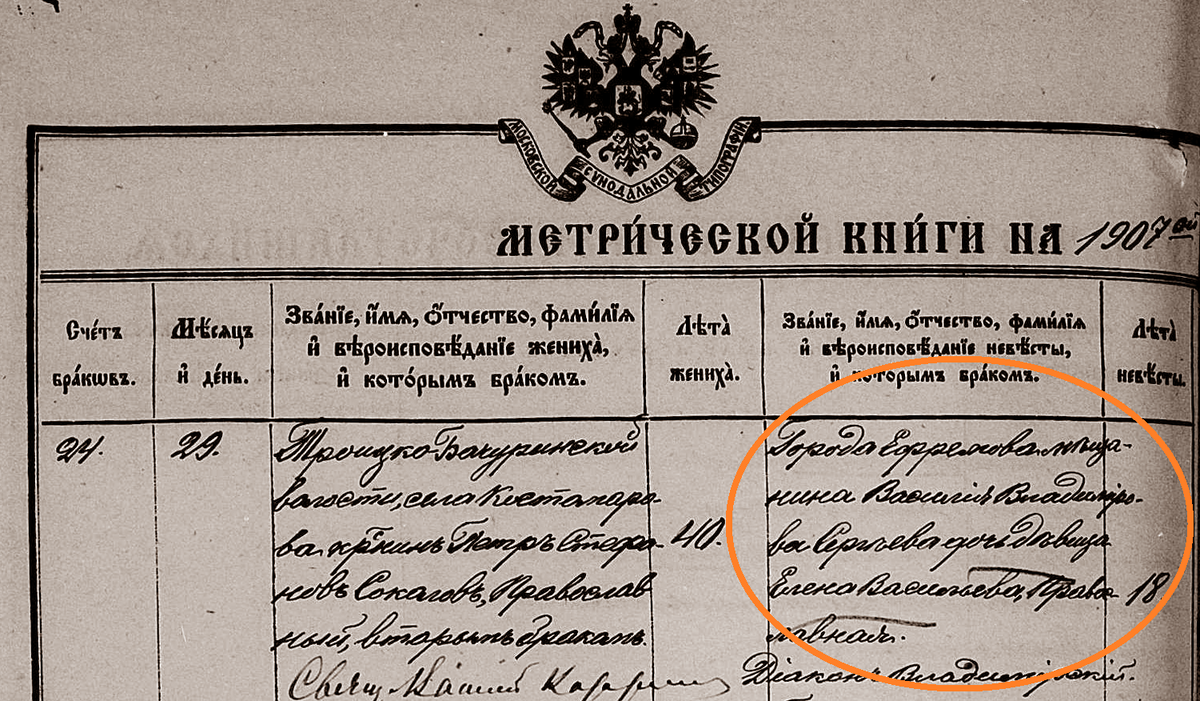 МОСКОВСКОЙ СѴНОДАЛЬНОЙ ТИПОГРАФІИ
МЕТРИ́ЧЕСКОЙ КНИ́ГИ НА 1907 ой
Счéтъ брáкѡвъ.
Мѣ́сяцъ и҆ де́нь.
Звáнїе, и҆́мѧ, ѻ҆́тчество, фами́лїѧ
и҆ вѣроисповѣ́данїе женихà,
и҆ кото́рымъ брáкомъ.
Лѣ́та женихà.
Звáнїе, и҆́мѧ, ѻ҆́тчество, фами́лїѧ
и҆ вѣроисповѣ́данїе невѣ́сты,
и҆ кото́рымъ брáкомъ.
Лѣ́та невѣ́сты.
24.
29.
Троицко-Бачуринской
волости, села Костомаро-
ва кр-нинъ Петръ Стефа-
новъ Соколовъ, Православ
ный, вторымъ бракомъ.
40.
Города Ефремова мѣща-
нина Василія Владиміро-
ва Сергѣева дочь дѣвица
Елена Васильева, Право-
славная.
18
Свящ.
Діаконъ Владимірскій.